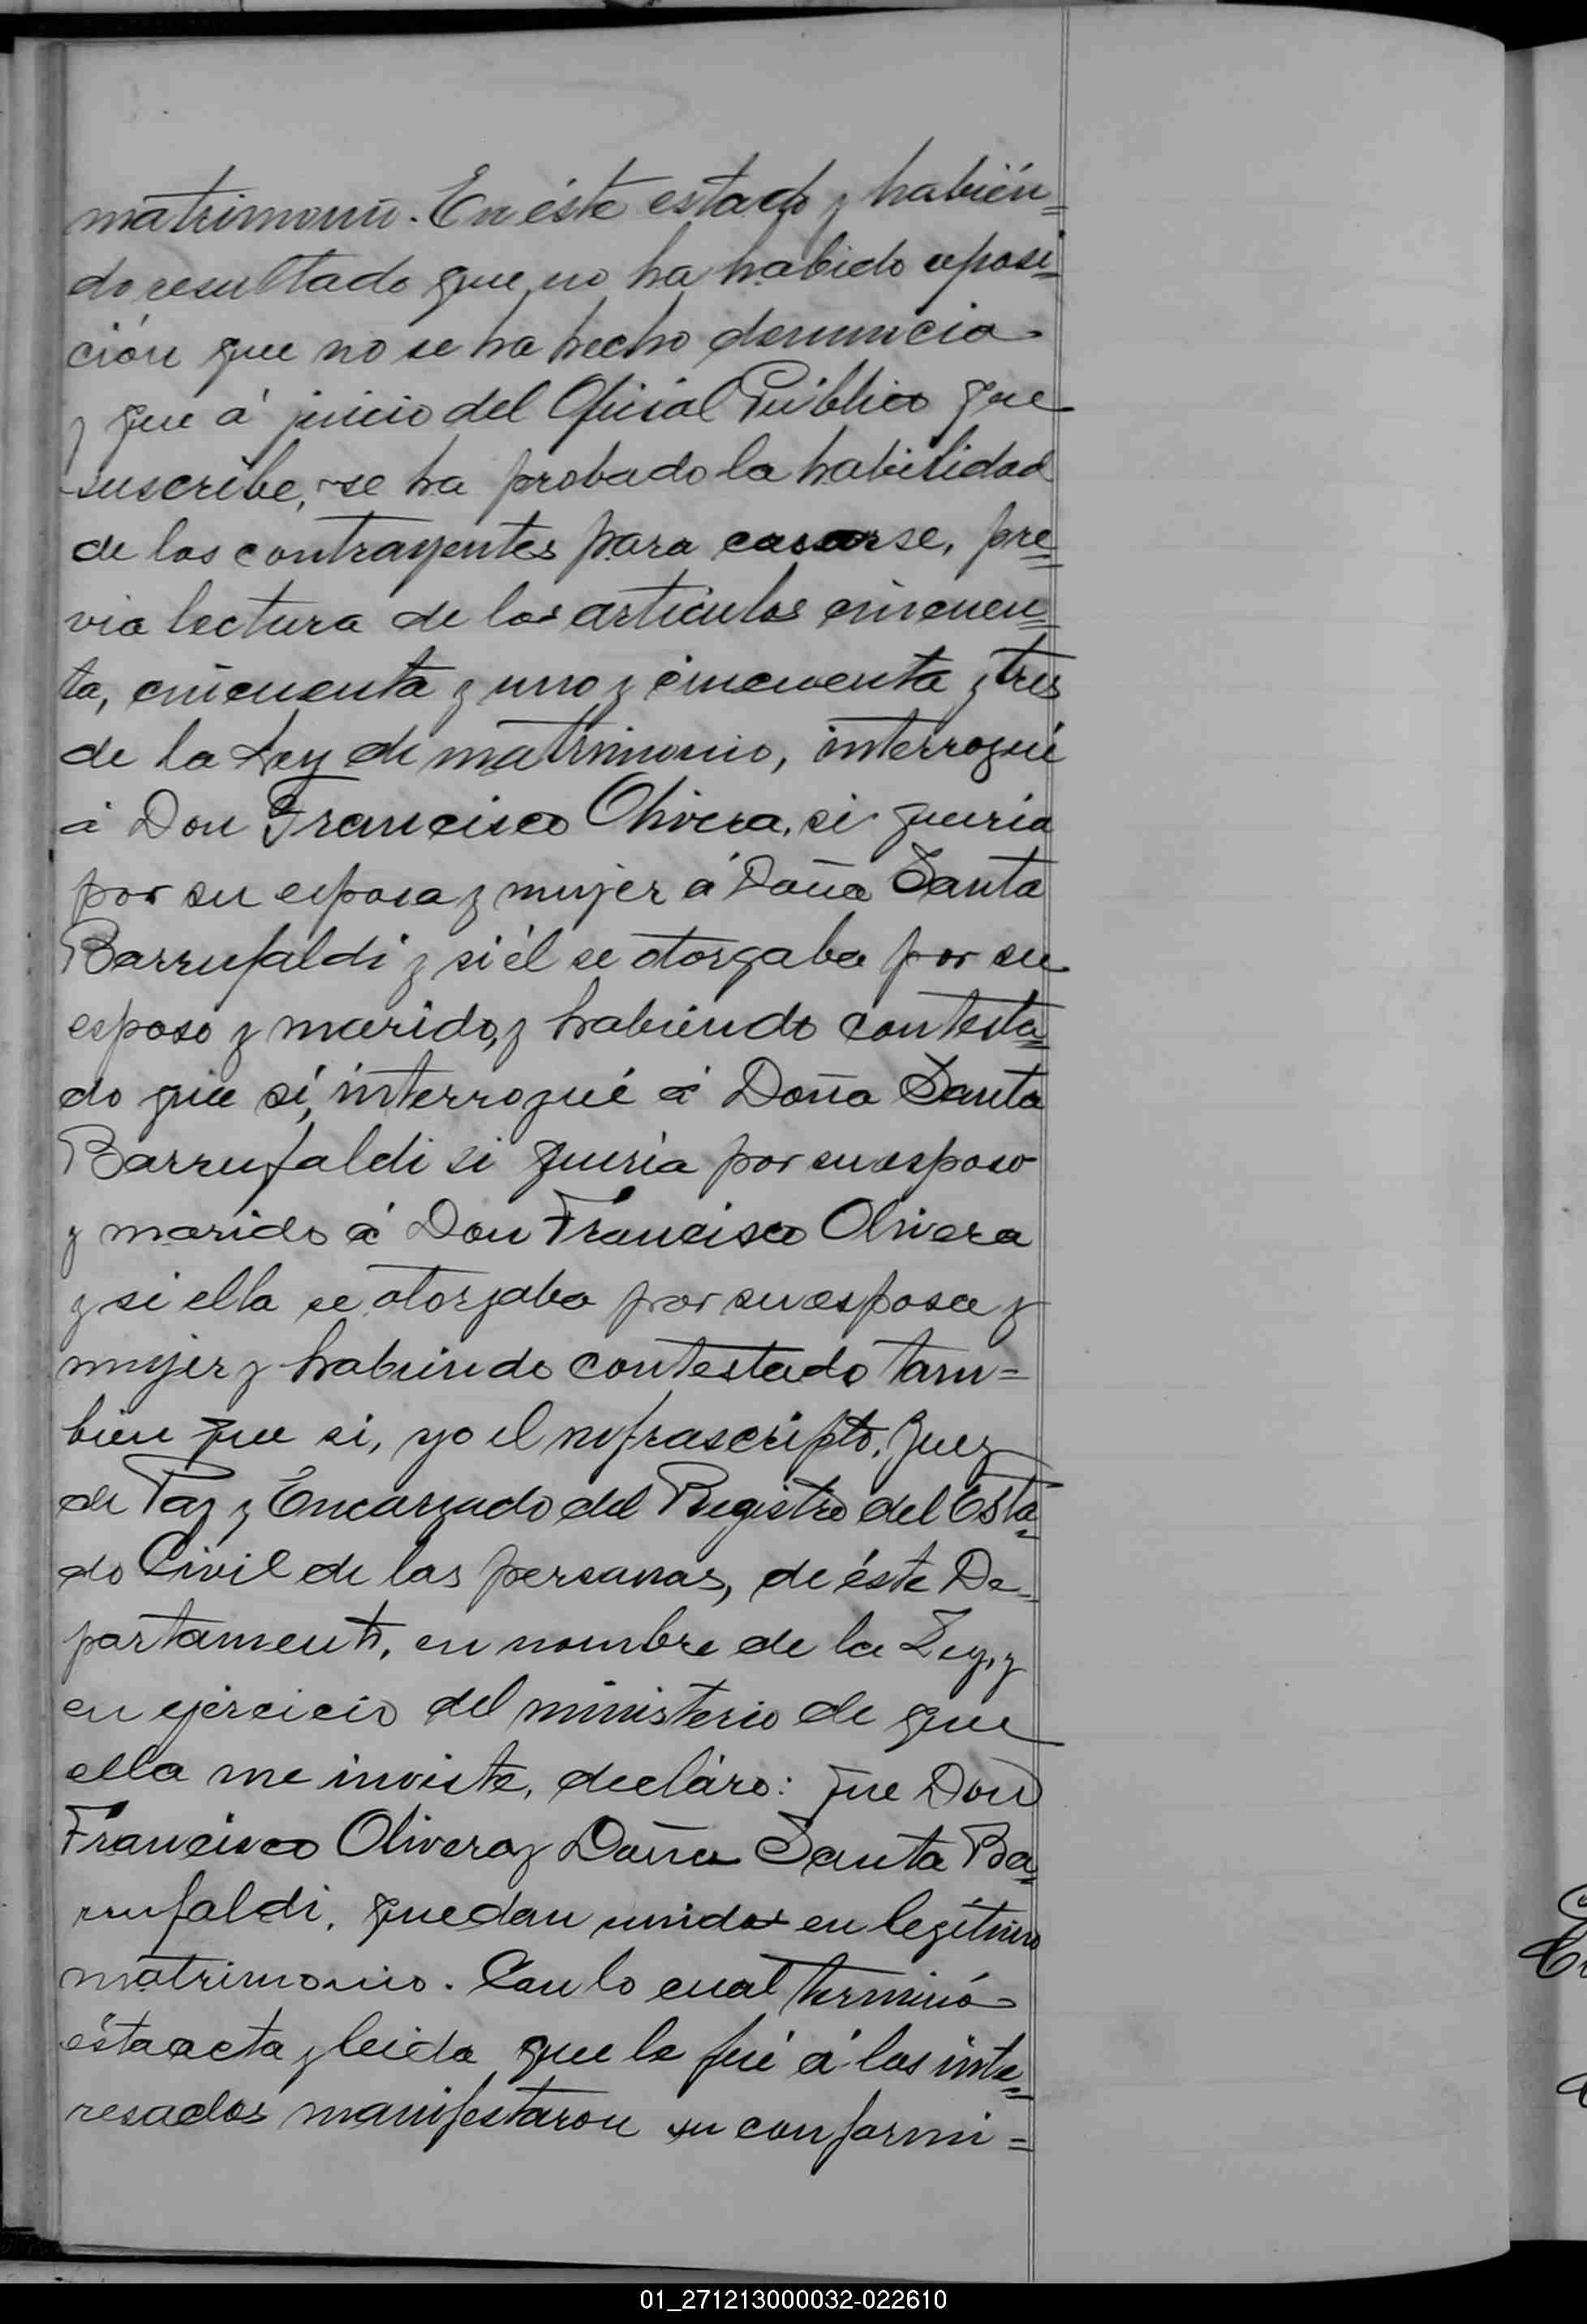 matrimonio. En éste estado y habién=
do resultado que no ha habido oposi=
ción que no se ha hecho denuncia
y que á juicio del Oficial Público que
suscribe, se ha probado la habilidad
de los contrayentes para casarse, pre=
via lectura de los artículos cincuen=
ta, cincuenta y uno y cincuenta y tres
de la Ley de matrimonio, interrogué
á Don Francisco Olivera, si queria
por su esposa y mujer á Doña Santa
Barrufaldi y si él se otorgaba por su
esposo y marido, y habiendo contesta=
do que sí, interrogué á Doña Santa
Barrufaldi si queria por su esposo
y marido á Don Francisco Olivera
y si ella se otorgaba por su esposa y
mujer y habiendo contestado tam=
bien que si, yo el infrascripto, Juez
de Paz y Encargado del Registro del Esta=
do Civil de las personas, de éste De=
partamento, en nombre de la Ley, y
en ejercicio del ministerio de que
ella me inviste, decláro: que Don
Francisco Olivera y Doña Santa Ba=
rrufaldi, quedan unidos en legítimo
matrimonio. Con lo cual terminó
ésta acta y leida que le fué á los inte=
resados manifestaron su conformi=
01_271213000032-022610